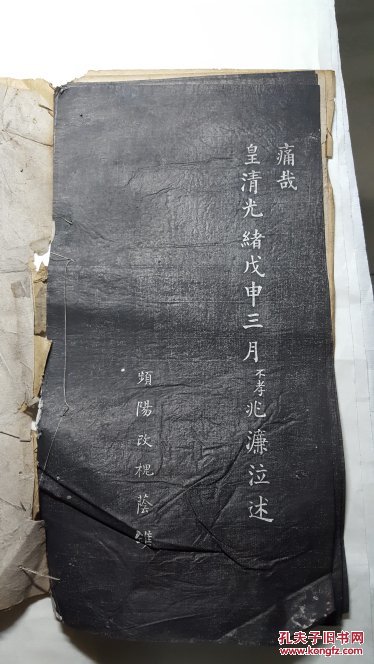 痛哉
皇清光緒戊申三月不孝兆濂泣述
頻陽改槐蔭鐫
孔夫子旧书网